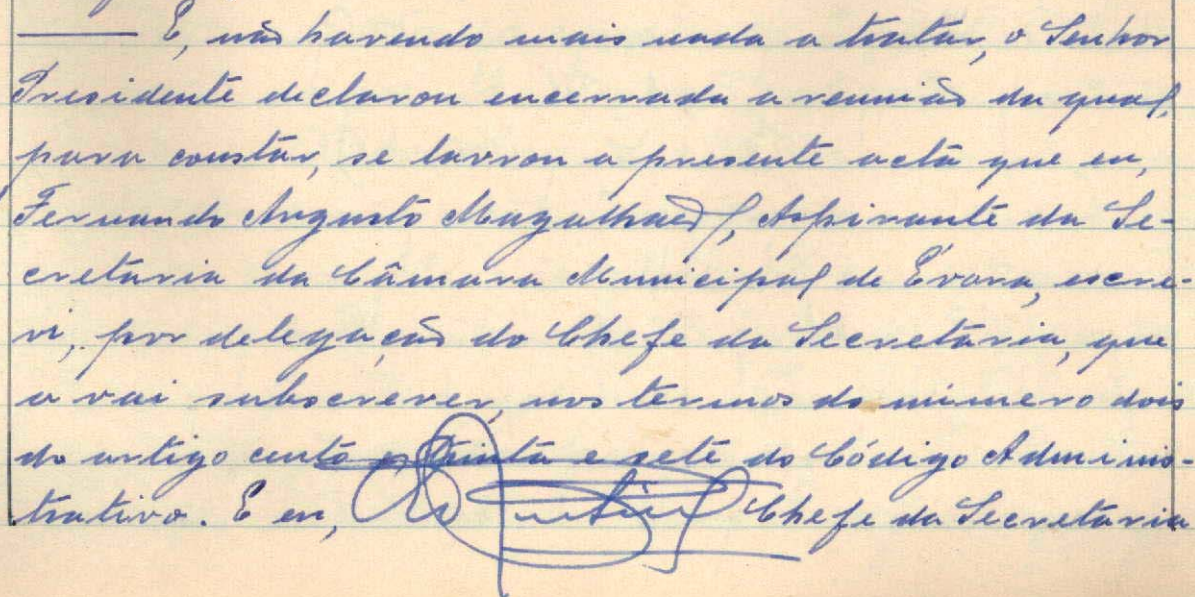 ——— E, não havendo mais nada a tratar, o Senhor
Presidente declarou encerrada a reunião da qual,
para constar, se lavrou a presente acta que eu,
Fernando Augusto Magalhães, Aspirante da Se-
cretaria da Câmara Municipal de Évora, escre-
vi, por delegação do Chefe da Secretaria, que
a vai subscrever, nos termos do número dois
do artigo cento e trinta e sete do Código Adminis-
trativo. E eu, Chefe da Secretaria